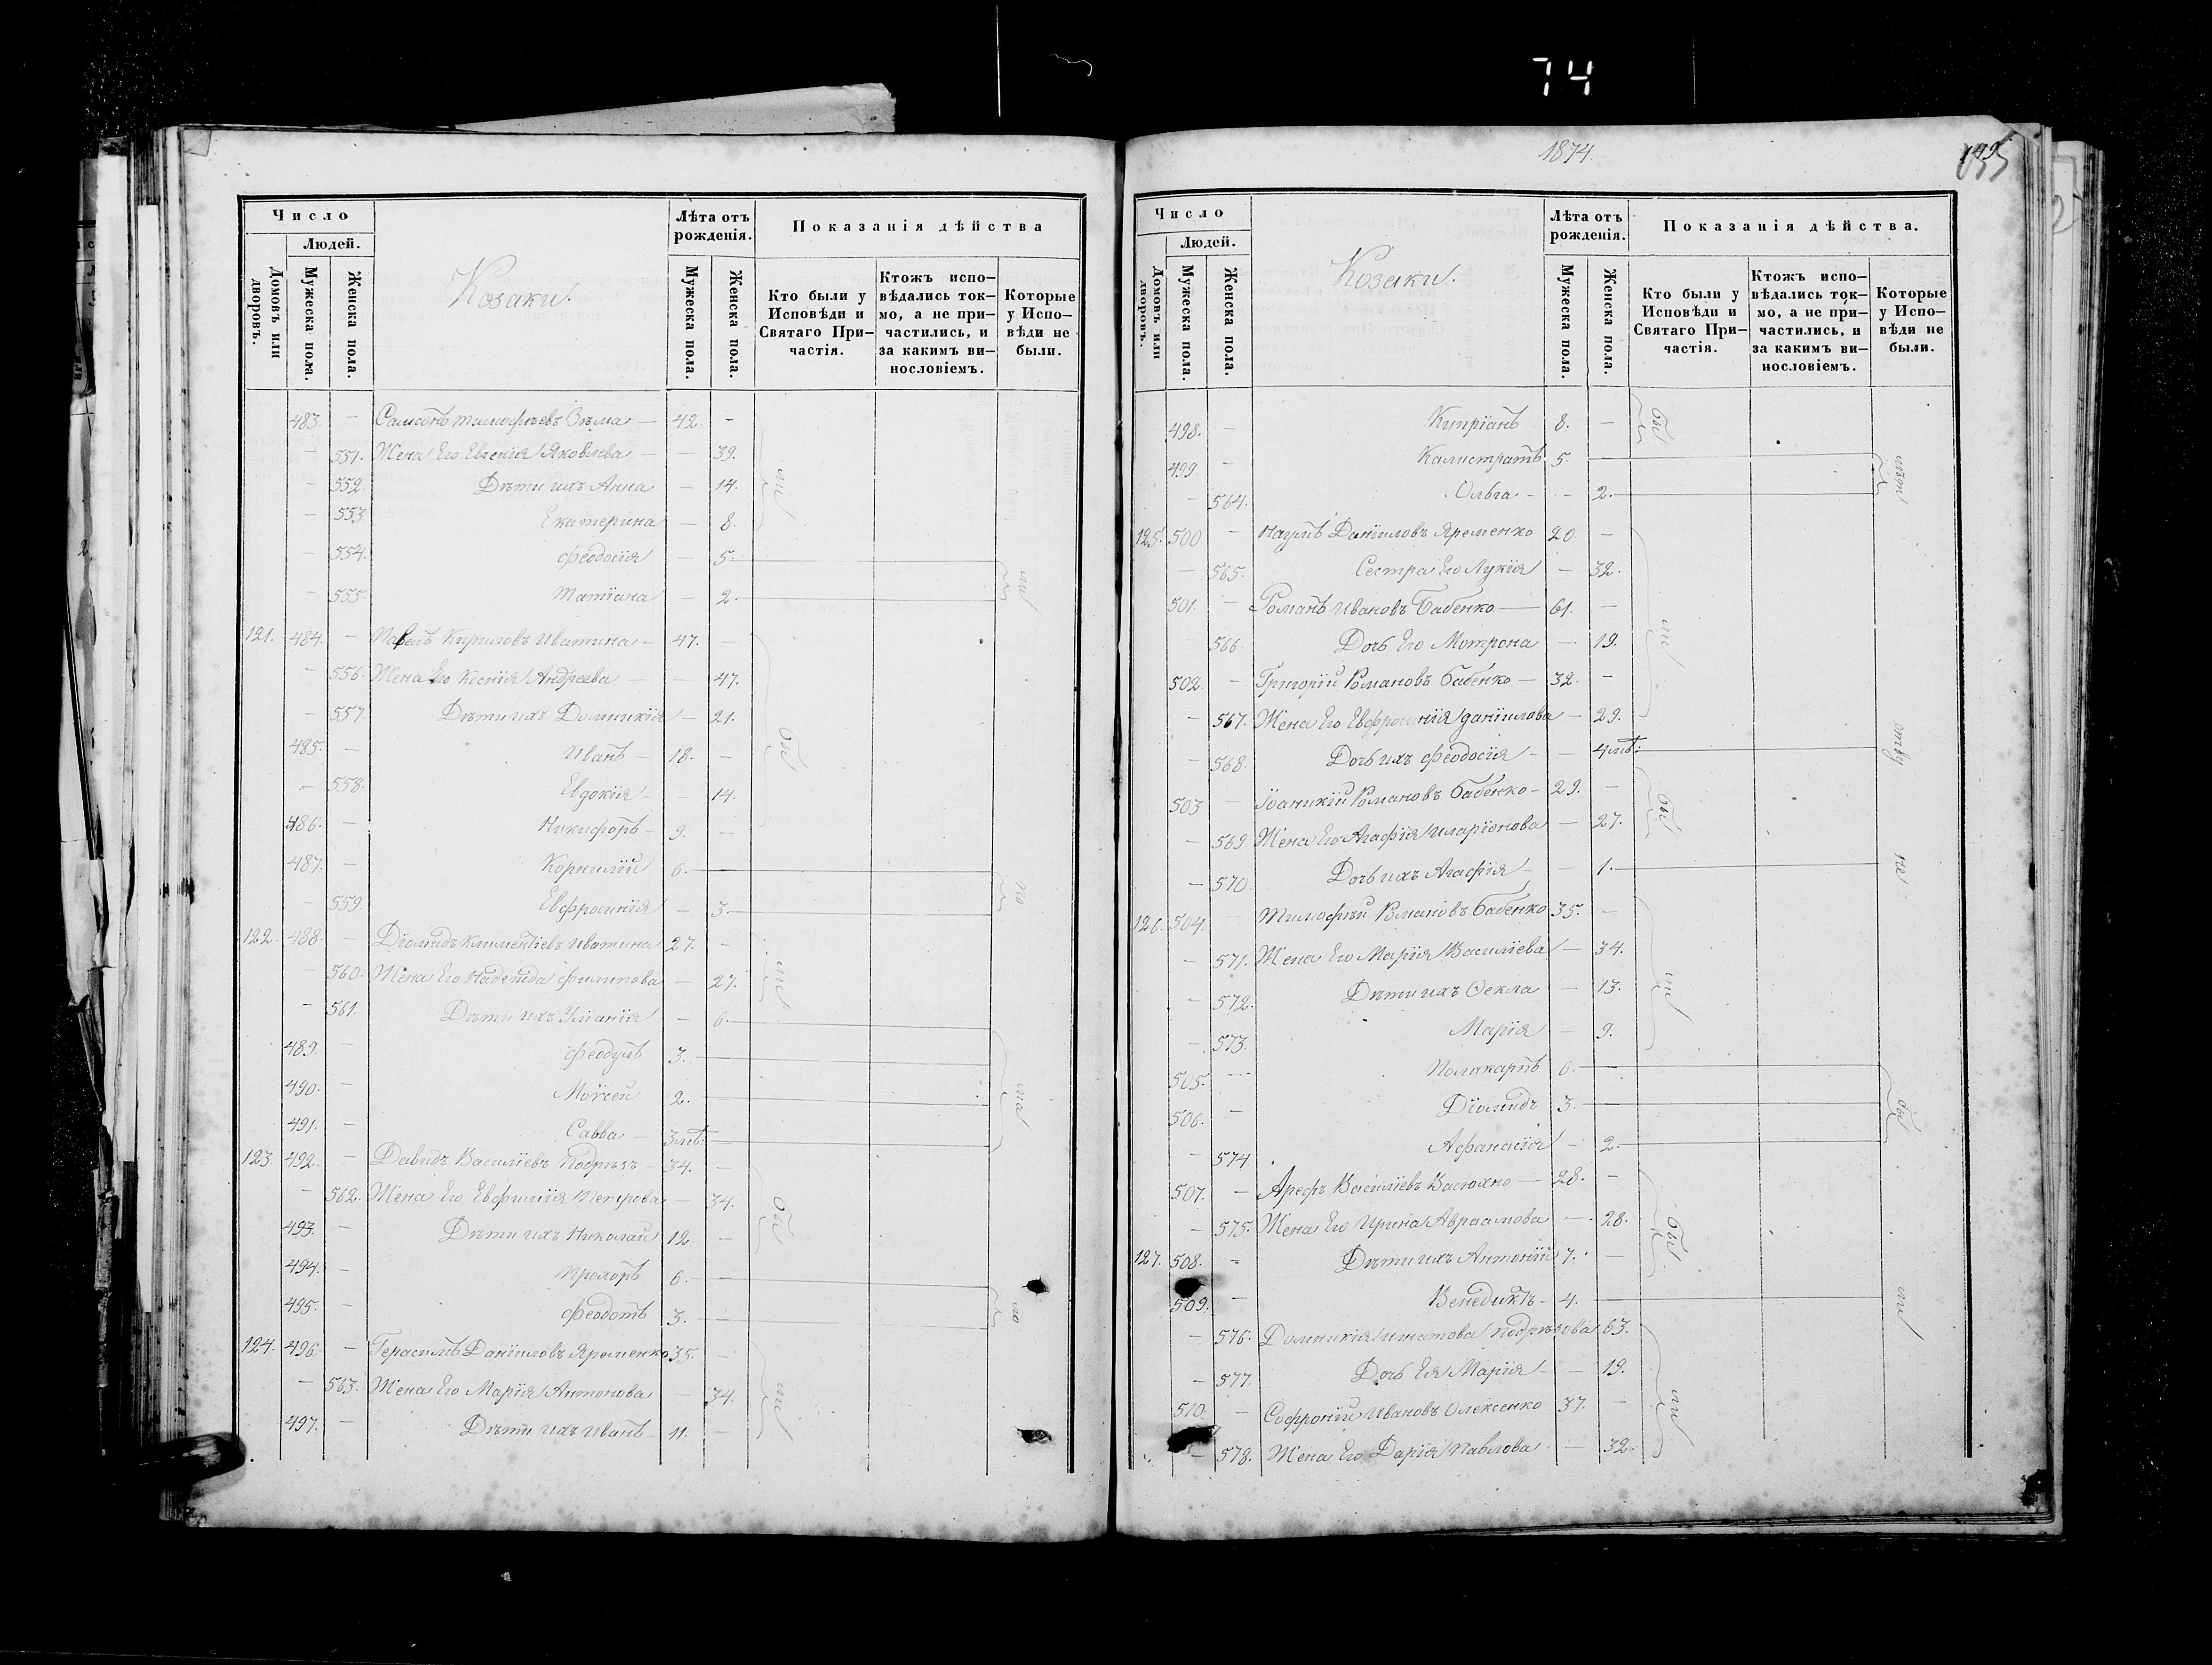 74
Число
Людей.
Домовъ или дворовъ.
Мужеска пола.
Женска пола.
Козаки.
Лѣта отъ рожденія.
Мужеска пола.
Женска пола.
Показанія дѣйства
Кто были у Исповѣди и Святаго При-частія.
Ктожъ испо-вѣдались ток-мо, а не при-частились, и за какимъ ви-нословіемъ.
Которые у Испо-вѣди не были.
483. — Самсонъ Тимофѣевъ Зѣма — 42. —
— 551. Жена Его Евгенія Яковлева — — 39.
— 552. Дѣти ихъ Анна — 14.
— 553. Екатерина — 8.
— 554. Феодосія — 5.
— 555. Татіана — 2.
121. 484. — Павелъ Кириловъ Ивашина — 47. —
— 556. Жена Его Ксенія Андреева — — 47.
— 557. Дѣти ихъ Домникія — 21.
485. — Иванъ — 18. —
— 558. Евдокія — — 14.
486. — Никифоръ — 9. —
487. — Корнилій 6.
— 559. Евфросинія — 3.
122. 488. — Діомидъ Климентіевъ Ивашина 27. —
— 560. Жена Его Надежда Филипова — 27.
— 561. Дѣти ихъ Уліанія — 6.
489. — Феодулъ 3.
490. — Моѵсей 2.
491. — Савва — 3 мѣ:
123. 492. — Давидъ Василіевъ Подрѣзъ — 34. —
— 562. Жена Его Евфимія Петрова — 34.
493. — Дѣти ихъ Николай 12. —
494. — Прохоръ 6. —
495. — Феодотъ 3. —
124. 496. — Герасимъ Даніиловъ Яременко 35. —
— 563. Жена Его Марія Антонова — 34.
497. — Дѣти ихъ Иванъ — 11. —
1874.
Число
Людей.
Домовъ или дворовъ.
Мужеска пола.
Женска пола.
Козаки.
Лѣта отъ рожденія.
Мужеска пола.
Женска пола.
Показанія дѣйства.
Кто были у Исповѣди и Святаго При-частія.
Ктожъ испо-вѣдались ток-мо, а не при-частились, и за какимъ ви-нословіемъ.
Которые у Испо-вѣди не были.
498. — Кипріанъ 8. —
499. — Калистратъ 5.
— 564. Ольга — — 2.
125. 500. — Наумъ Даніиловъ Яременко 20. —
— 565. Сестра Его Лукія — 32.
501. — Романъ Ивановъ Бабенко — 61. —
— 566. Дочь Его Мотрона — 19.
502. — Григорій Романовъ Бабенко — 32. —
— 567. Жена Его Евфросинія Даніилова — 29.
— 568. Дочь ихъ Феодосія — — 4 мѣ:
503 — Іоаникій Романовъ Бабенко — 29. —
— 569. Жена Его Агафія Иларіонова — 27.
— 570. Дочь ихъ Агафія — — 1.
126. 504. — Тимофѣй Романовъ Бабенко 35. —
— 571. Жена Его Марія Василіева — 34.
— 572. Дѣти ихъ Ѳекла — 13.
— 573. Марія — 9.
505. — Поликарпъ 6.
506. — Діомидъ 3.
— 574. Афанасія — 2.
507. — Арефъ Василіевъ Васюхно — 28. —
— 575. Жена Его Ирина Авраамова — 28.
127. 508. — Дѣти ихъ Антоній 7. —
509. — Венедиктъ — 4.
— 576. Домникія Игнатова Подрѣзова 63.
— 577. Дочь Ея Марія — — 19.
510. — Софроній Ивановъ Олексенко 37. —
— 578. Жена Его Дарія Павлова — 32.